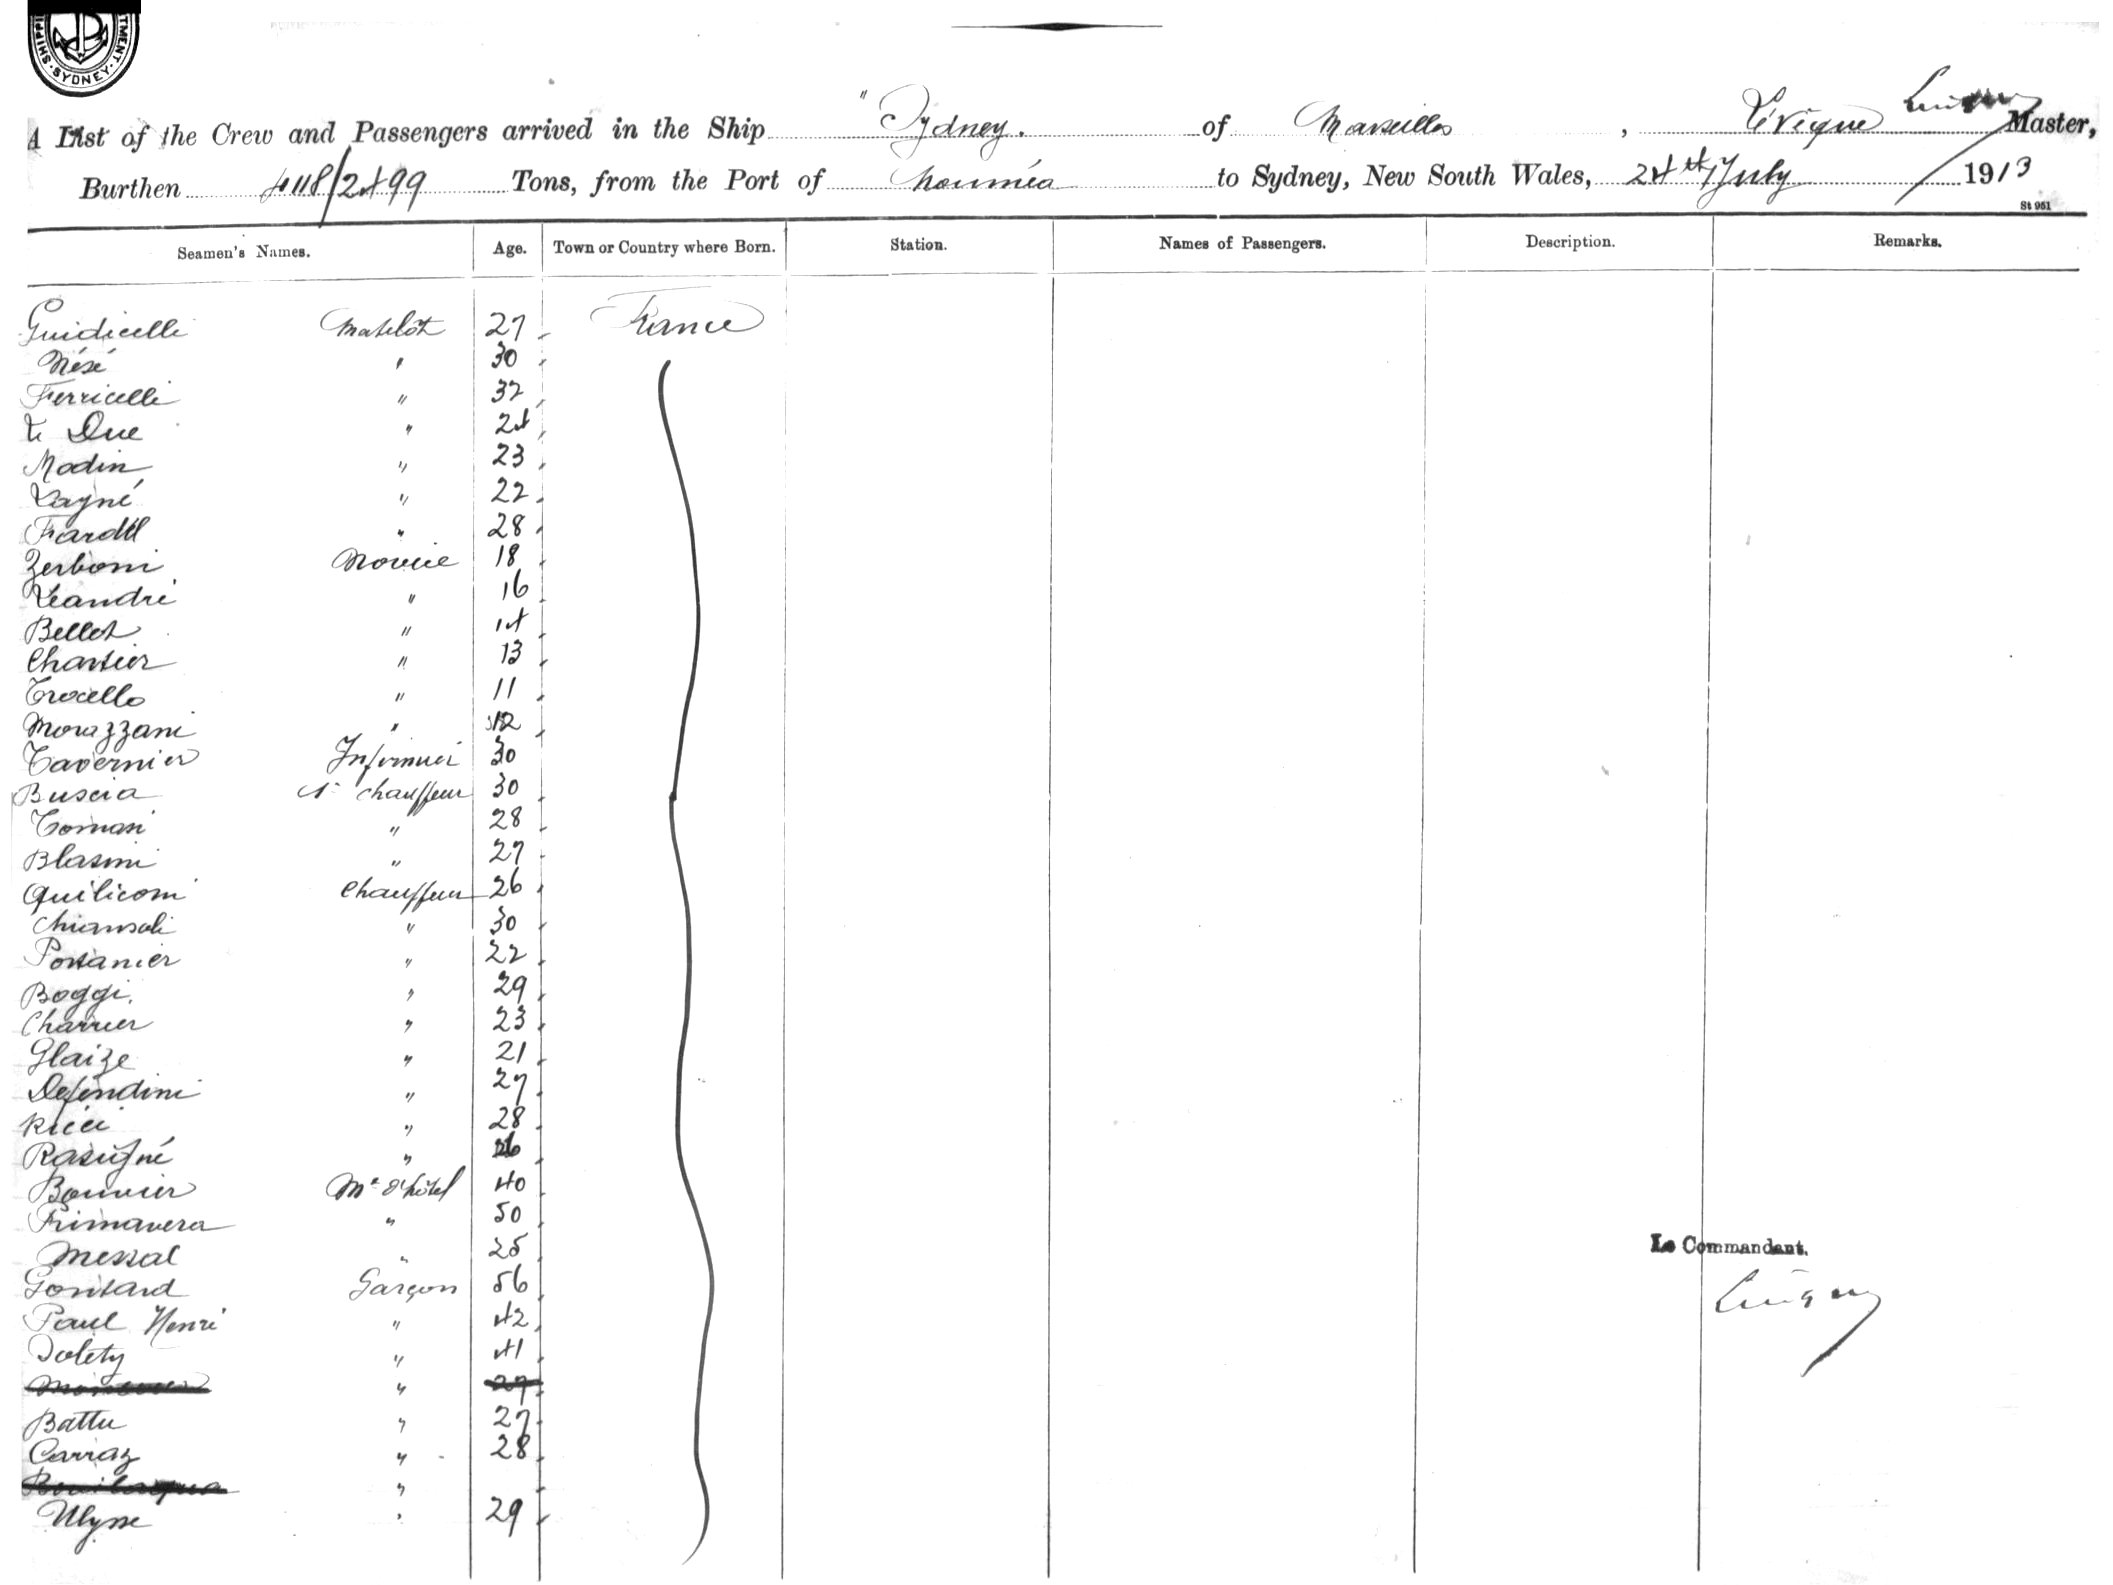 SHIPPING SYDNEY
A List of the Crew and Passengers arrived in the Ship "Sydney. of Marseilles, Lévêque Master,
Burthen 4118/2499 Tons, from the Port of Nouméa to Sydney, New South Wales, 24th July 1913
St 951
Seamen's Names. Age. Town or Country where Born. Station. Names of Passengers. Description. Remarks.
Guidicelli Matelot 27 France
Nésé " 30
Ferricelli " 32
Le Due " 24
Modin " 23
Layné " 22
" 28
Zerboni Novice 18
Léandri " 16
Bellet " 14
Chartier " 13
Trocello " 11
Morazzani " 12
Tavernier Infirmier 30
Buscia 1r chauffeur 30
Tomasi " 28
Blasini " 27
Quiliconi Chauffeur 26
" 30
Portanier " 22
Boggi. " 29
Charrier " 23
Glaize " 21
Defendini " 27
Ricci " 28
" 26
Bouvier Me d'hôtel 40
Primavera " 50
Messal " 25
Gontard Garçon 56
Paul Henri " 42
Dolety " 41
" 27
Battu " 27
Carraz " 28
"
Ulysse " 29
Le Commandant.